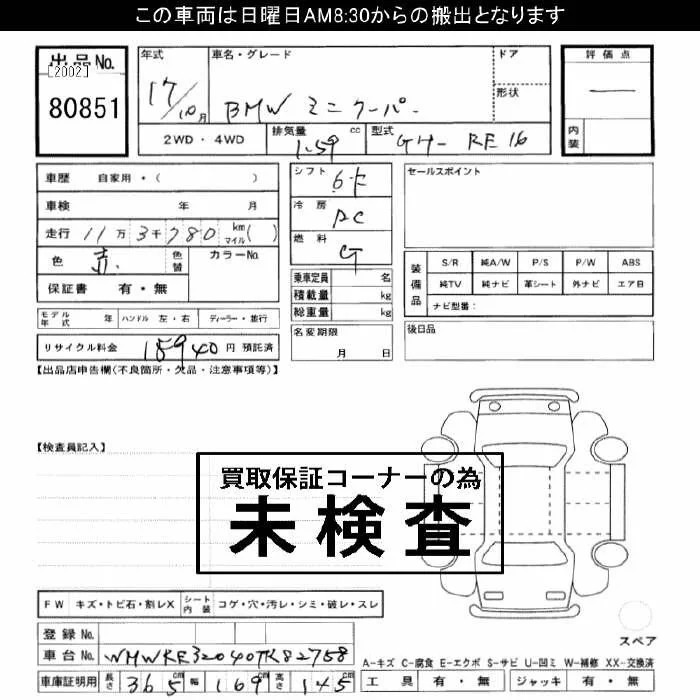 この車両は日曜日AM8:30からの搬出となります
出品No.
[2002]
80851
年式 車名・グレード ドア
17/10月 BMW ミニクーパー 形状
2WD・4WD 排気量 1.59 cc 型式 GH- RE16
評価点
―
内装
車歴 自家用・( )
車検 年 月
走行 11万3千780 km マイル( )
色 赤 色替 カラーNo.
保証書 有・無
モデル年式 年 ハンドル 左・右 ディーラー・並行
リサイクル料金 15940円 預託済
シフト 6F
冷房 AC
燃料 G
乗車定員 名
積載量 kg
総重量 kg
名変期限
月 日
セールスポイント
装備品 S/R 純A/W P/S P/W ABS
純TV 純ナビ 革シート 外ナビ エア日
ナビ型番:
後日品
【出品店申告欄(不良箇所・欠品・注意事項等)】
【検査員記入】
買取保証コーナーの為
未検査
FW キズ・トビ石・割レX シート内装 コゲ・穴・汚レ・シミ・破レ・スレ
登録No.
車台No. WMWRE32040TK82758
車庫証明用 長さ 365cm 幅 169cm 高さ 145cm
スペア
A-キズ C-腐食 E-エクボ S-サビ U-凹ミ W-補修 XX-交換済
工具 有・無 ジャッキ 有・無